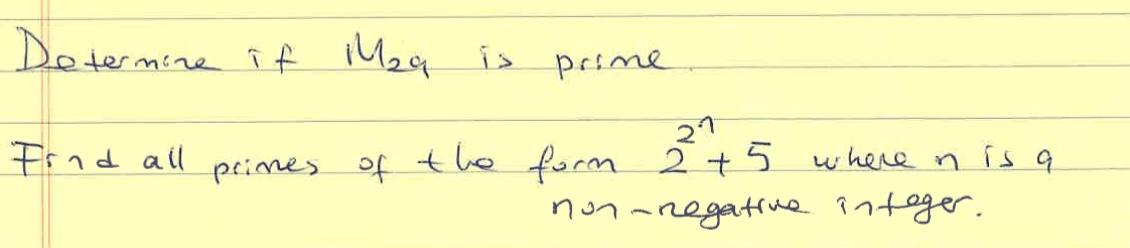 Determine if M₂₉ is prime.
Find all primes of the form 2^{2^n} + 5 where n is a
non-negative integer.